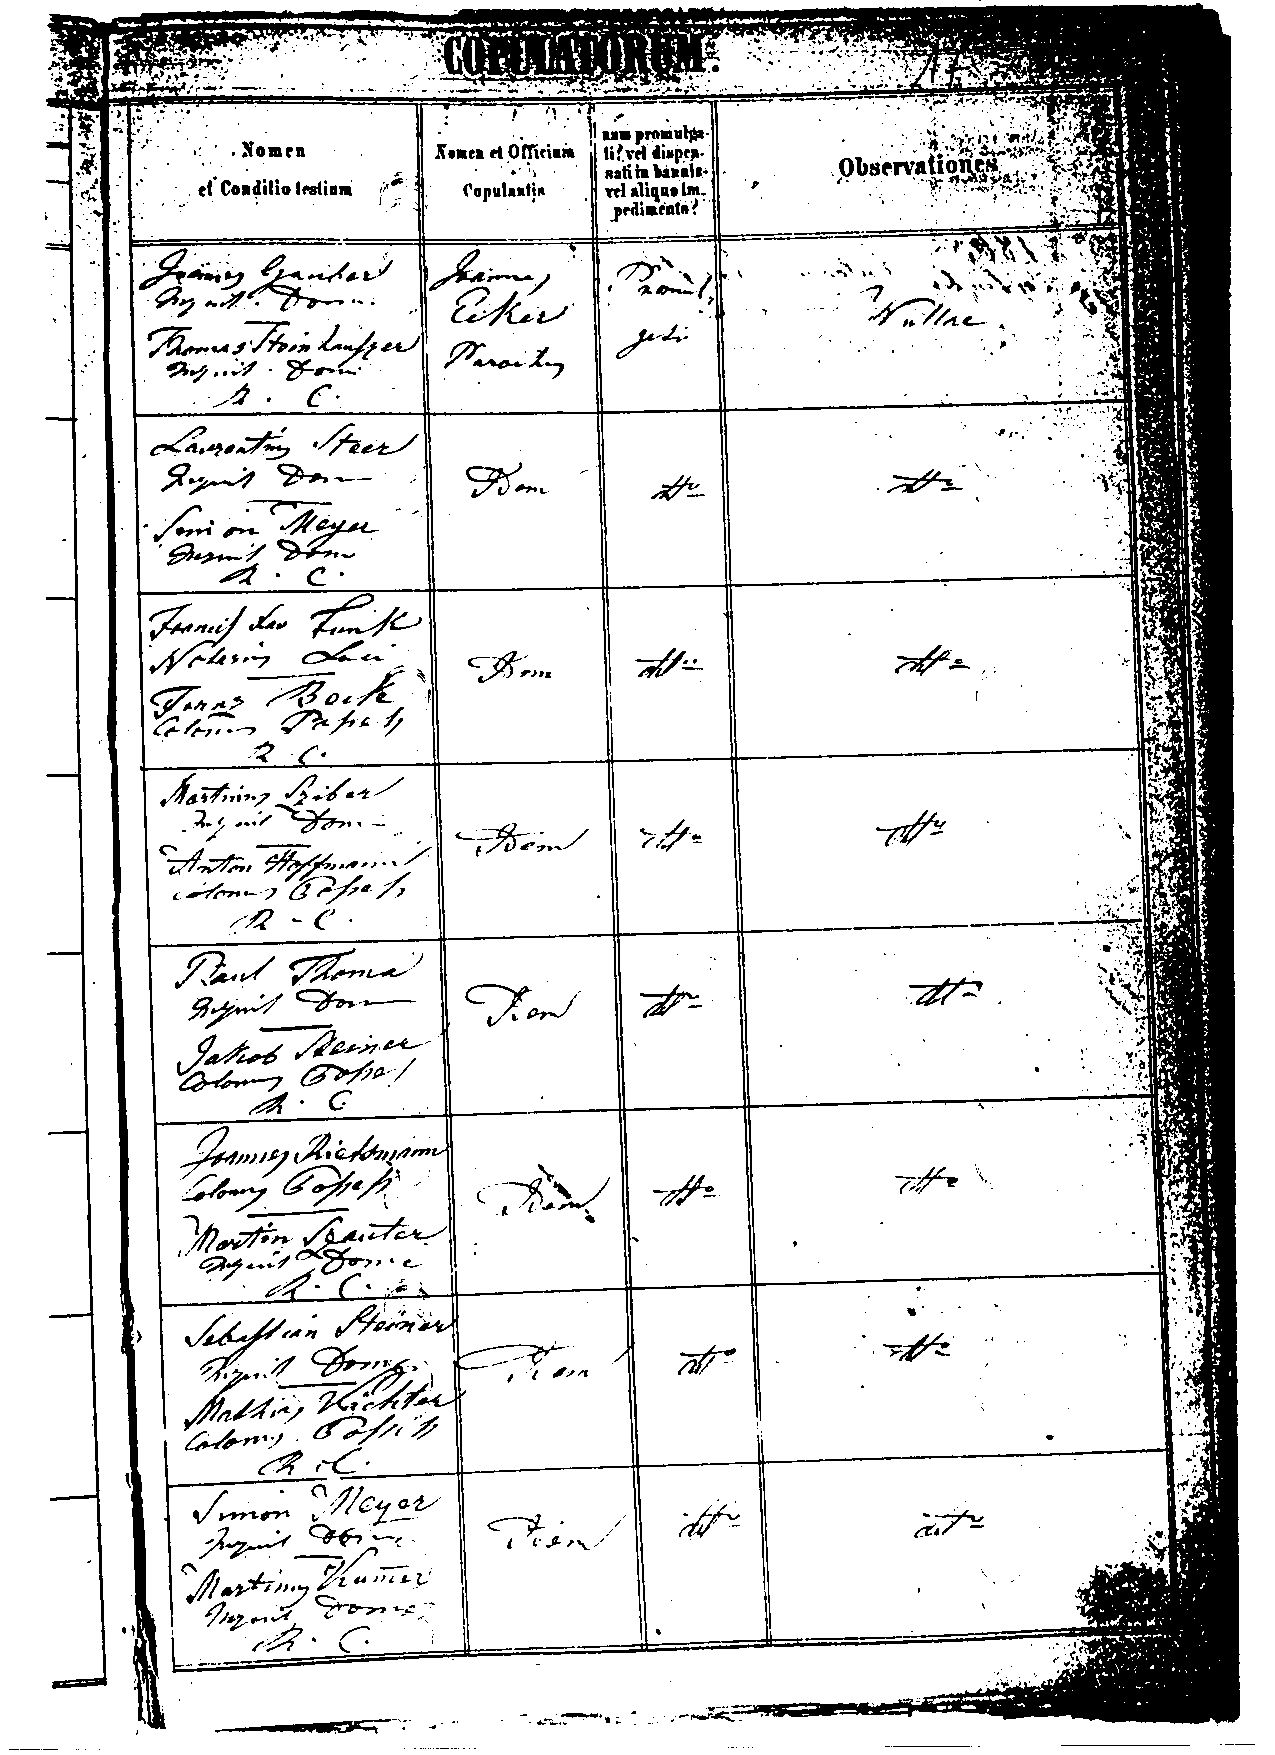 COPULATORUM.
Nomen
et Conditio testium
Nomen et Officium
Copulantis
num promulga-
ti? vel dispen-
sati in bannis
vel aliquo Im-
pedimento?
Observationes
Joannes
Inquil. Dom.
Thomas Steinhauszer
Inquil. Dom
R. C.
Joannes
Ecker
Parochus
Promul
gati
Nullae
Laurentius Steer
Inquil Dom
Simon Meyer
Inquil Dom
R. C.
Idem
dtto
dtto
Francis Xav Funk
Notarius Loci
Franz Bock
Colonus Possess
R. C.
Idem
dtto
dtto
Martinus Sziber
Inquil Dom
Anton Hoffmann
Colonus Possess
R. C.
Idem
dtto
dtto
Paul Thoma
Inquil Dom
Jakob Steiner
Colonus Posses
R. C
Idem
dtto
dtto
Joannes Rietsmann
Colonus Possess
Martin Szauter
Inquil Dome
R. C.
Idem
dtto
dtto
Sebastian Steiner
Inquil Dome
Mathias Richter
Colonus Possess
R. C.
Idem
dtto
dtto
Simon Meyer
Inquil Dome
Martinus
Inquil Dome
R. C.
Idem
ditto
ditto